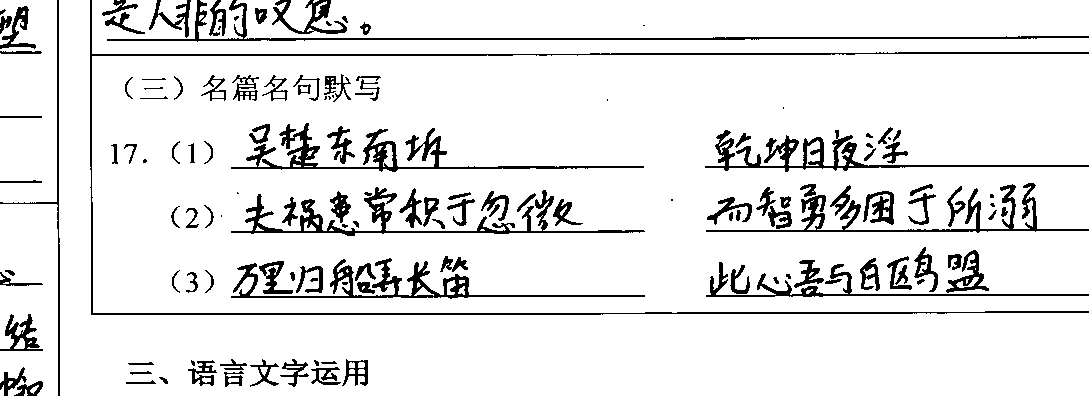 是人非的叹息。
(三)名篇名句默写
17.(1) 吴楚东南坼 乾坤日夜浮
(2) 夫祸患常积于忽微 而智勇多困于所溺
(3) 万里归船弄长笛 此心吾与白鸥盟
三、语言文字运用
结